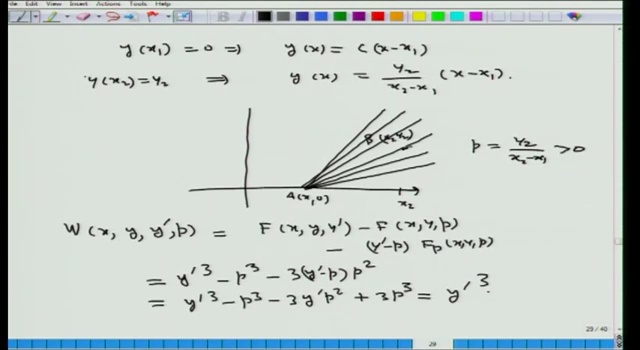 File Edit View Insert Actions Tools Help
y(x₁) = 0 ⇒ y(x) = C(x-x₁)
y(x₂) = y₂ ⇒ y(x) = y₂/(x₂-x₁) (x-x₁).
B(x₂,y₂)
p = y₂/(x₂-x₁) > 0
A(x₁,0)
x₂
W(x, y, y', p) = F(x, y, y') - F(x, y, p)
- (y'-p) Fp(x,y,p)
= y'³ - p³ - 3(y'-p)p²
= y'³ - p³ - 3y'p² + 3p³ = y'³
29 / 40
29